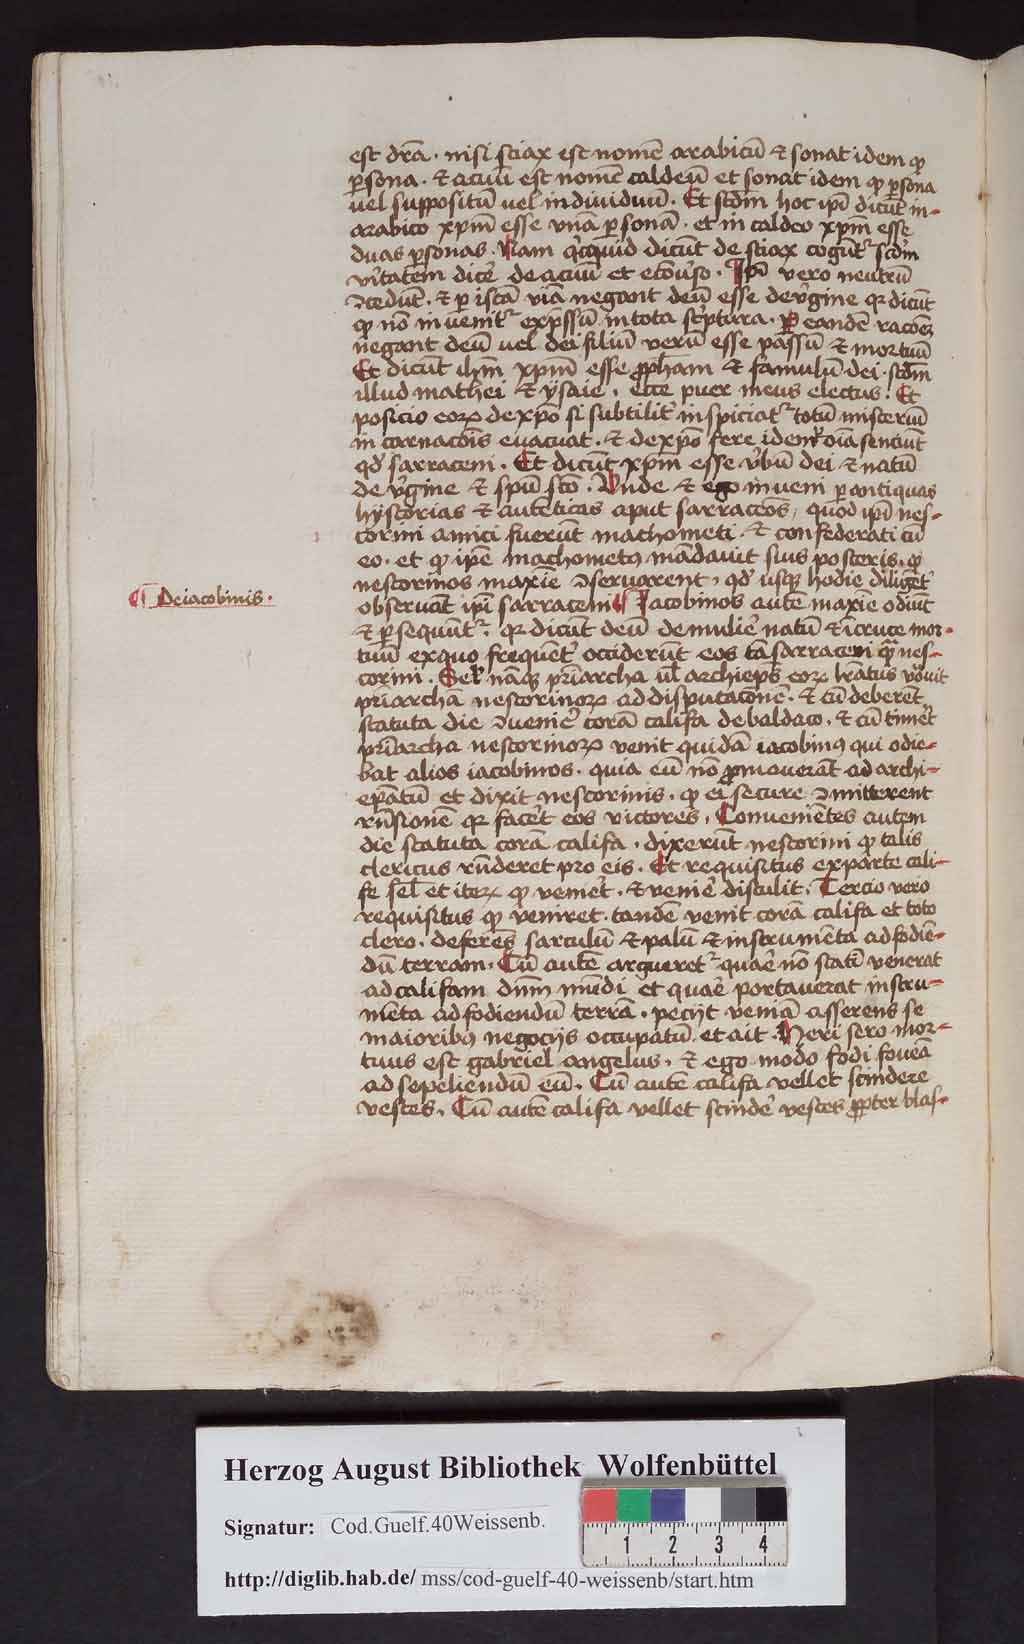 est dr̄a · nisi sciax est nomē arabicū & sonat idem qꝫ
ꝑsona · & acuū est nomē caldeū et sonat idem qꝫ ꝑsona
uel suppositū uel indiuiduū · Et scd̄m hoc ip̄i dicūt in-
arabico xp̄m esse vnā ꝑsonā · et in caldeo xp̄m esse
duas ꝑsonas · Nam qͥcquid dicūt de sciax cogunt᷑ scd̄m
v̓itatem dicē de acuū et eꝯūso · Ip̄i vero neutrū
ꝯcedūt · & ꝑ istā viā negant deū esse de v̓gine qꝛ dicūt
qꝫ nō inuenit᷑ exp̄ssū in tota sc̓ptura · ꝑ eandē rac̄oeꝫ
negant deū uel dei filiū verū esse passū & mortuū
Et dicūt ih̄m xp̄m esse ꝓph̄am & famulū dei · scd̄m
illud mathei & ysaie · ecce puer meus electus · Et
posicio eoꝝ de xp̄o si subtilit̓ inspiciat᷑ totū misteriū
in carnac̄ois euacuat · & de xp̄o fere idem oīa senciūt
qd̓ sarraceni · Et dicūt xp̄m esse v̓bū dei & natū
de v̓gine & spū scō · Unde & ego inueni ꝑ antiquas
hystorias & autenticas aput sarracēos, quod ip̄i nes-
torini amici fuerūt machometi & confederati cū
eo · et qꝫ ip̄e machometꝰ mādauit suis posteris · qꝫ
nestorinos maxīe ꝯseruarent · qd̓ usqꝫ hodie diligēt̓
¶ De iacobinis ·
obseruāt ip̄i sarraceni ¶ Iacobinos autē maxīe odiūt
& ꝑsequūt᷑ · qꝛ dicūt deū de muliē natū & ī cruce mor-
tuū ex quo frequēt̓ occiderūt eos tā sarraceni qͣ nes-
torini · namqꝫ pr̄iarcha ul̓ archiep̄s eoꝝ
pr̄iarchā nestorinoꝝ ad disputac̄onē · & cū deberēt
statuta die ꝯueniē corā califa de baldaco · & cū timēt
pr̄iarcha nestorinoꝝ venit quidā iacobinꝰ qui odie-
bat alios iacobinos · quia eū nō ꝓmouerāt ad archi-
ep̄atū et dixit nestorinis · qꝫ ei secure ꝯmitterent
rn̄sionē qꝛ facēt eos victores · Conueniētes autem
die statuta corā califa · dixerūt nestorini qꝫ talis
clericus rn̄deret pro eis · Et requisitus ex parte cali-
fe sel̓ et iteꝝ qꝫ veniēt · & veniē distulit · Tercio vero
requisitus qꝫ veniret · tandē venit corā califa et toto
clero · deferēs sarculū & palū & instrumēta ad fodiē-
dū terram · Cū autē argueret᷑ quaē nō statī venerat
ad califam dn̄m mūdi et quaē portauerat instru-
mēta ad fodiendū terrā · peciit veniā asserens se
maioribꝰ negociis occupatū et ait · Heri sero mor-
tuus est gabriel angelus · & ego modo fodi foueā
ad sepeliendū eū · Cū autē califa vellet scindere
vestes · Cū autē califa vellet scindē vestes ꝓpter blas-
Herzog August Bibliothek Wolfenbüttel
Signatur: Cod.Guelf.40Weissenb.
1 2 3 4
http://diglib.hab.de/ mss/cod-guelf-40-weissenb/start.htm